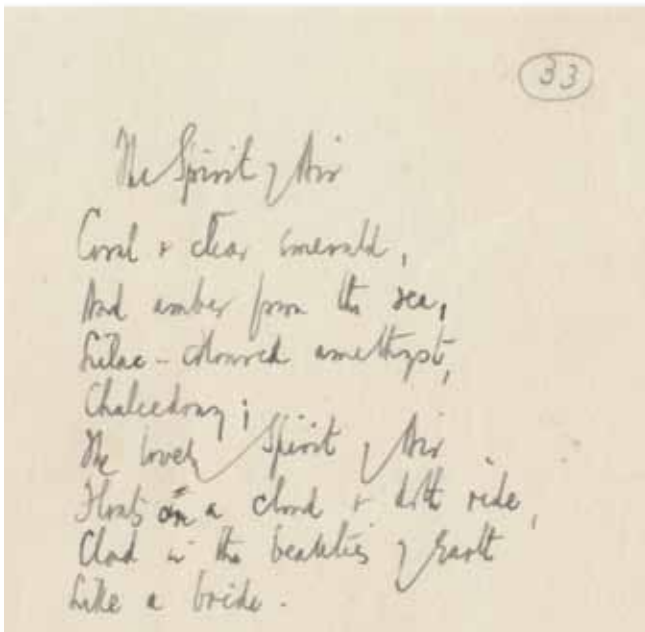 33
The Spirit of Air
Coral & clear emerald,
And amber from the sea,
Lilac-coloured amethyst,
Chalcedony;
The lovely Spirit of Air
Floats on a cloud & doth ride,
Clad in the beauties of Earth
Like a bride.